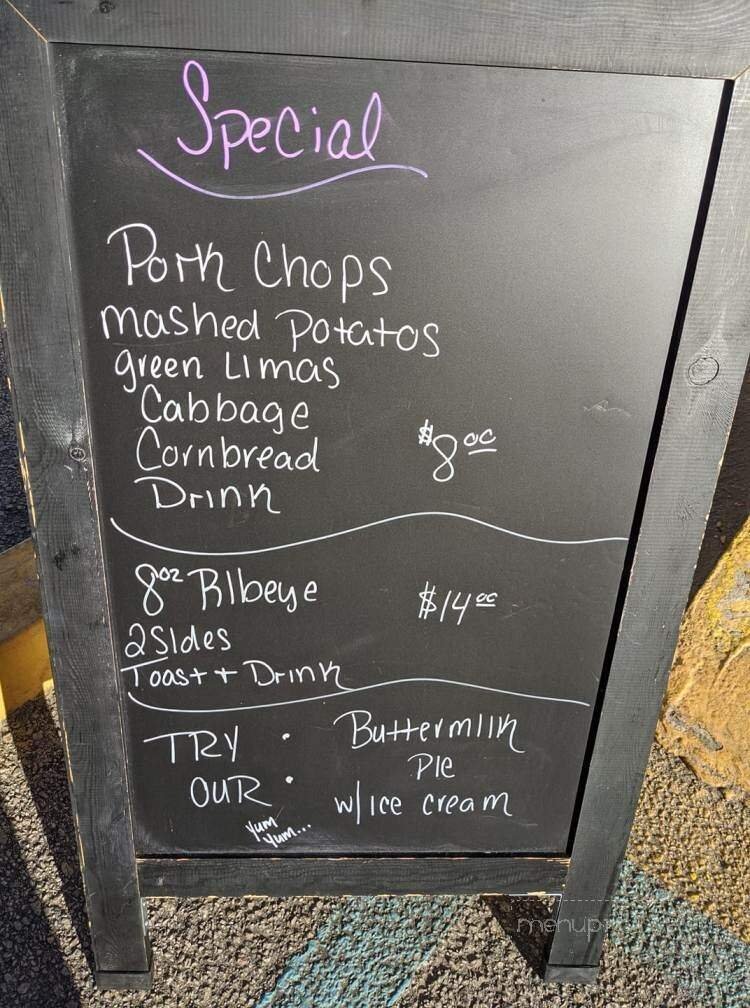 Special
Pork Chops
mashed Potatos
green Limas
Cabbage
Cornbread
Drink
$8.00
8oz RIbeye
$14.00
2 Sides
Toast + Drink
TRY :
OUR
Buttermilk
PIe
w/ice cream
yum
yum...